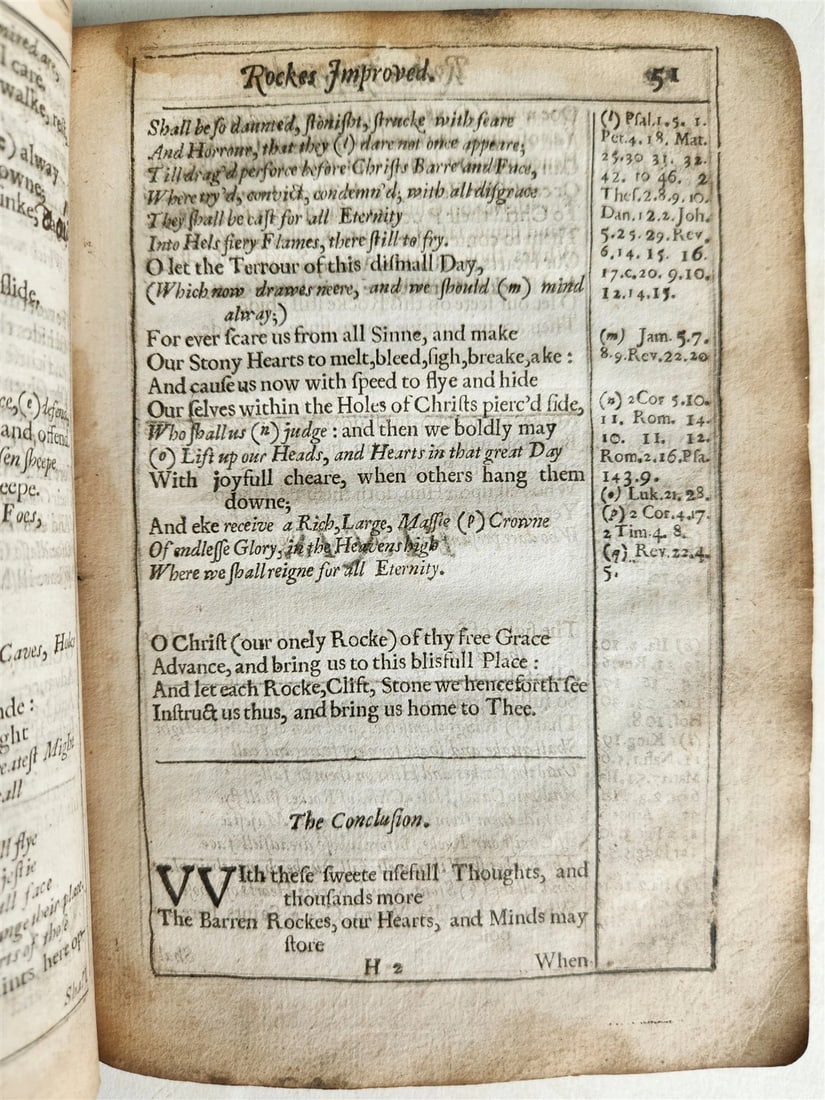 mired
I care,
walke,
) alway
owne;
inke,
slide,
ce, (e) defend
and, offend
sen sheepe
eepe.
Foes,
Caves, Holes
nde:
ght
eatest Might
all
ll flye
jestie
all face
ange their place,
rts of those
ints, here
Shall
Rockes Improved.
51
Shall be so daunted, stonisht, strucke with feare
And Horrour, that they (l) dare not once appeare;
Till drag'd perforce before Christs Barre and Face,
Where try'd, convict, condemn'd; with all disgrace
They shall be cast for all Eternity
Into Hels fiery Flames, there still to fry.
O let the Terrour of this dismall Day,
(Which now drawes neere, and we should (m) mind
alway;)
For ever scare us from all Sinne, and make
Our Stony Hearts to melt,bleed,sigh,breake,ake :
And cause us now with speed to flye and hide
Our selves within the Holes of Christs pierc'd side,
Who shall us (n) judge : and then we boldly may
(o) Lift up our Heads, and Hearts in that great Day
With joyfull cheare, when others hang them
downe;
And eke receive a Rich, Large, Massie (p) Crowne
Of endlesse Glory, in the Heavens high
Where we shall reigne for all Eternity.
O Christ (our onely Rocke) of thy free Grace
Advance, and bring us to this blisfull Place :
And let each Rocke,Clift, Stone we henceforth see
Instruct us thus, and bring us home to Thee.
The Conclusion.
VVIth these sweete usefull Thoughts, and
thousands more
The Barren Rockes, our Hearts, and Minds may
store
H 2
When
(l) Psal.1.5. 1.
Pet.4.18. Mat.
25.30 31. 32.
42. to 46. 2
Thes.2.8.9.10.
Dan.12.2. Joh.
5.25.29.Rev.
6.14. 15. 16.
17.c.20. 9.10.
12.14.15.
(m) Jam. 5.7.
8.9.Rev.22.20
(n) 2Cor 5.10.
11. Rom. 14.
10. 11. 12.
Rom.2.16.Psa.
143.9.
(o) Luk.21.28.
(p) 2 Cor.4.17.
2 Tim.4. 8.
(q) Rev.22.4.
5.